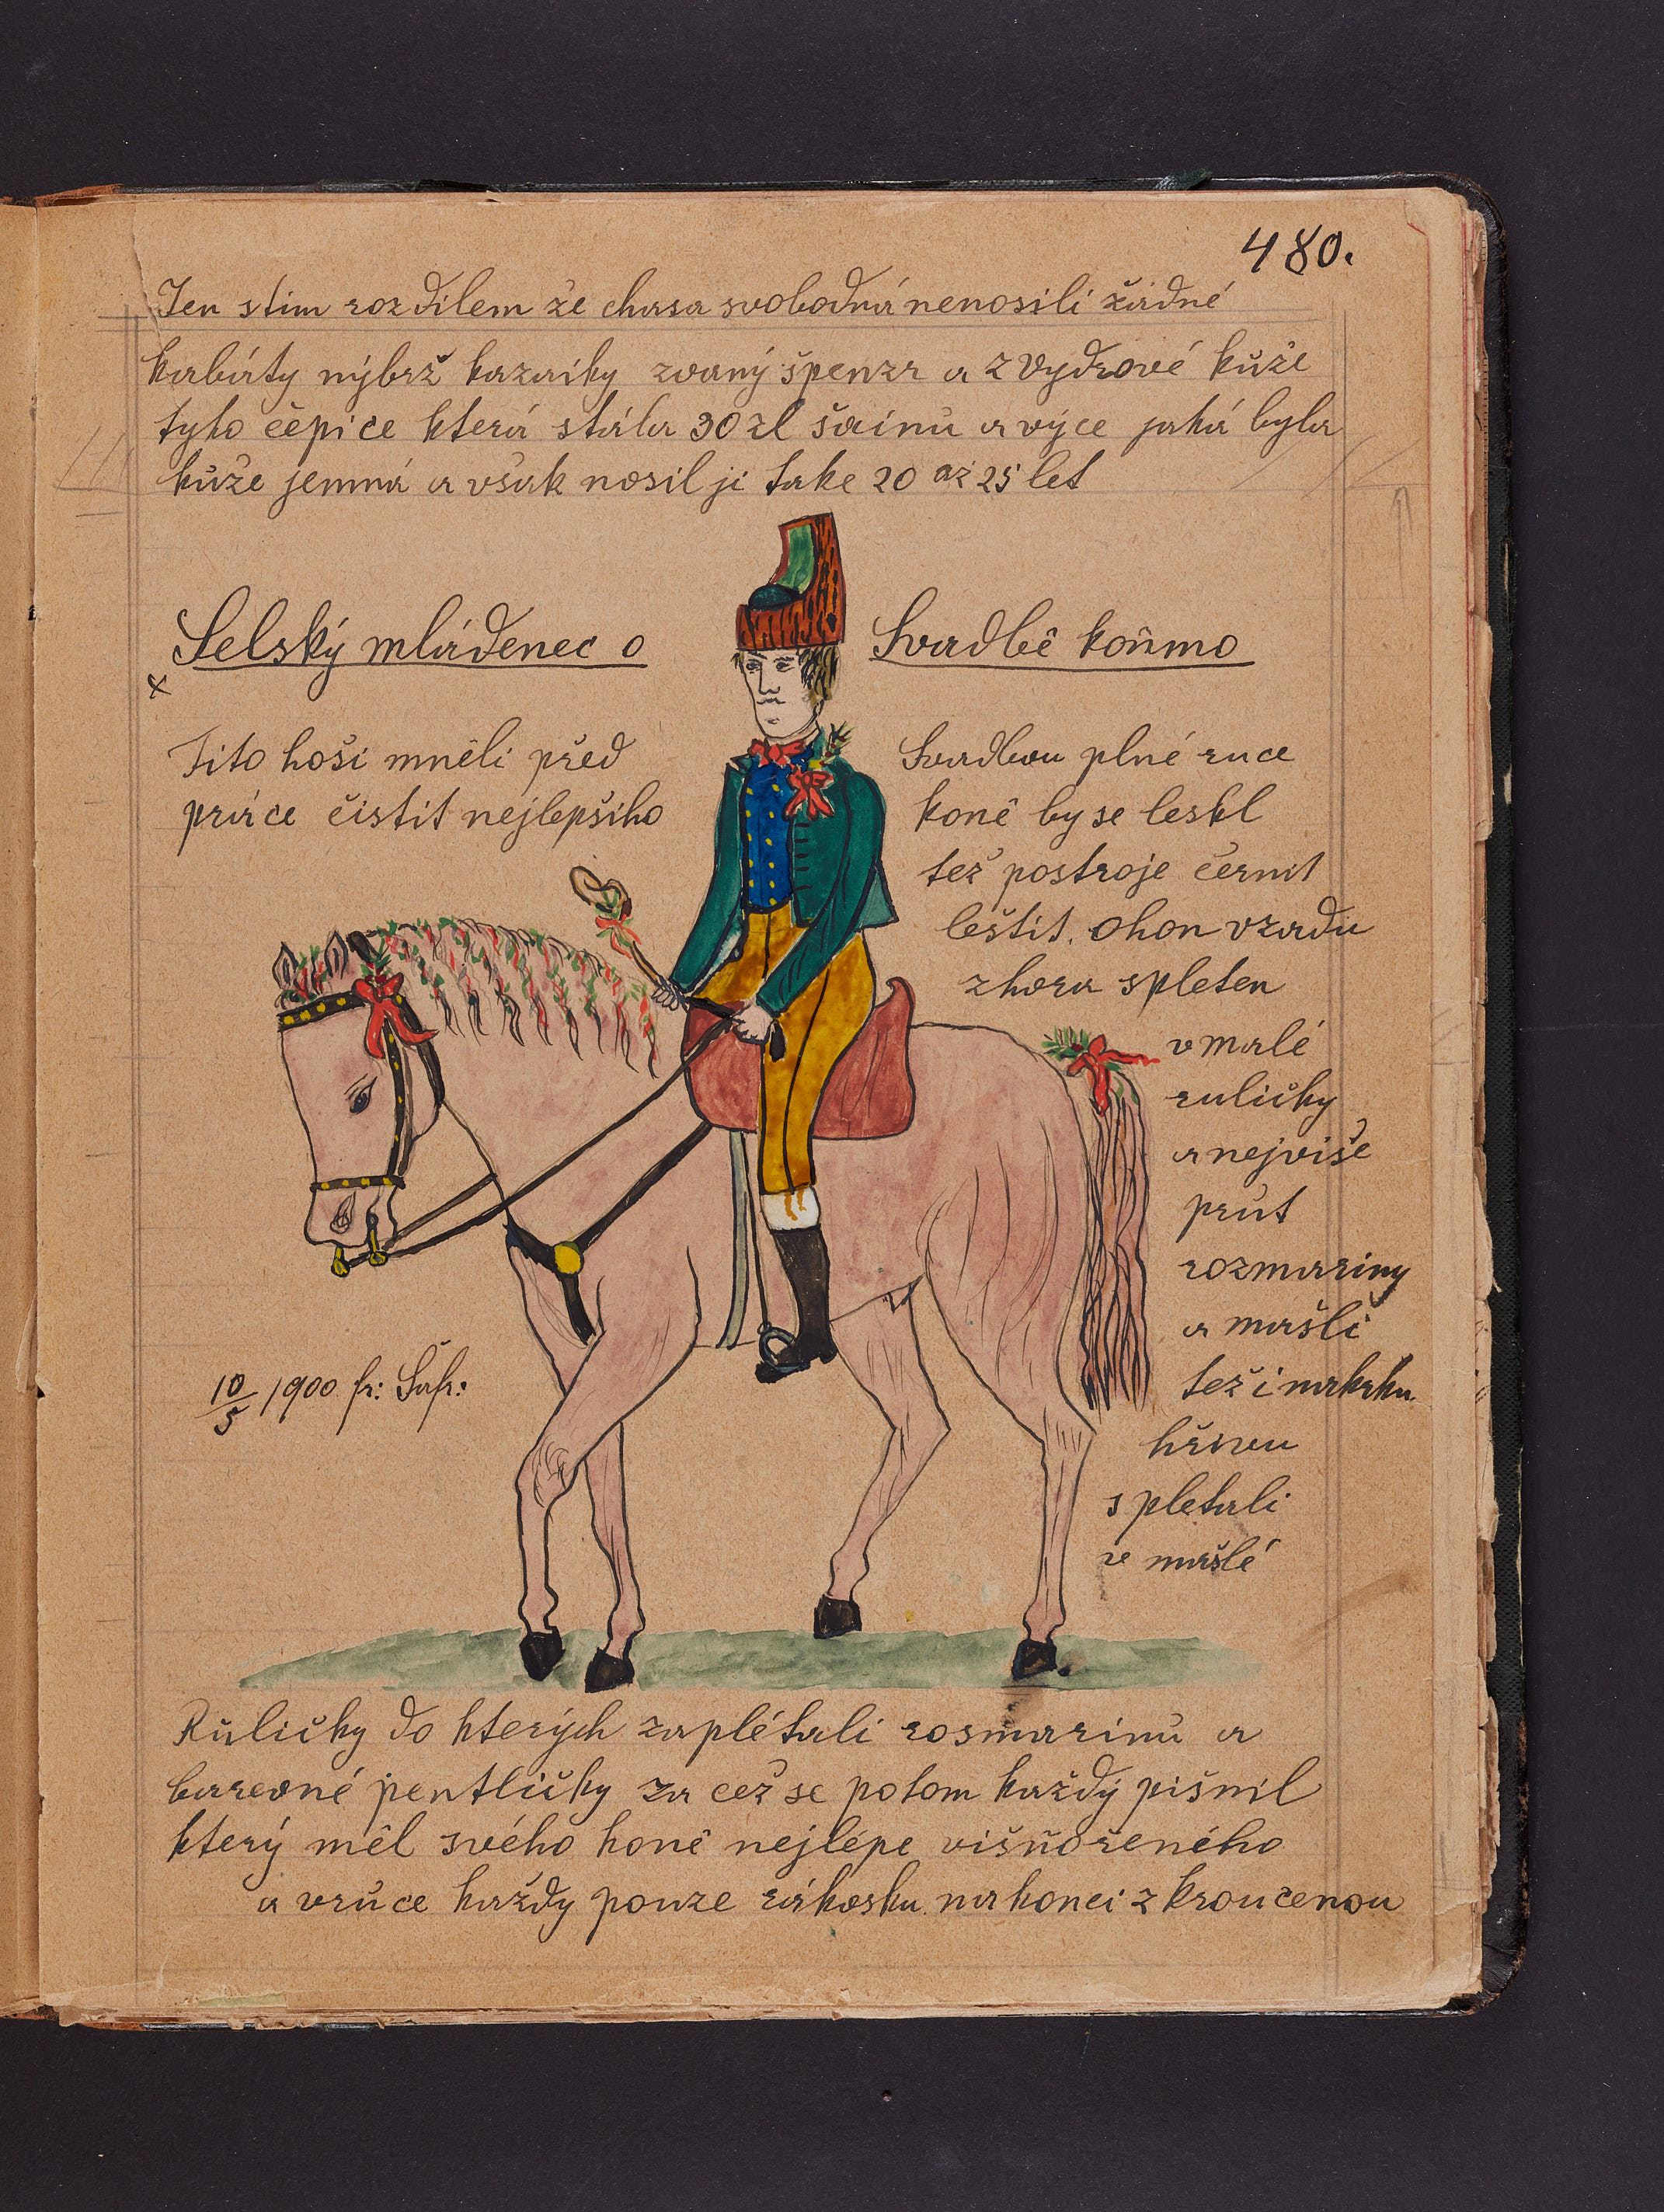 480.
Jen stím rozdílem že chasa svobodná nenosili žádné
kabáty nýbrž kazaiky zvaný špenzr a z vydrové kůže
tyto čépice která stála 30 zl šainů a výce jaká byla
kůže jemná a však nosil ji take 20 až 25 let
Selský mládenec o Svadbě koňmo
x
Tito hoši mněli před Svadbou plné ruce
práce čistit nejlepšiho koně by se leskl
též postroje černit
leštit. ohon vzadu
zhora spleten
v malé
ruličky
a nejviše
prút
rozmariny
a mašli
též i na krku
hřivu
spletali
v mašlé
10/5 1900 fr: Šafr:
Růličky do kterých zaplétali rosmarinů a
barevné pentličky za cež se potom každý pišnil
který měl svého koně nejlépe višňořeného
a vrůce každy pouze rákosku na konci z kroučenou